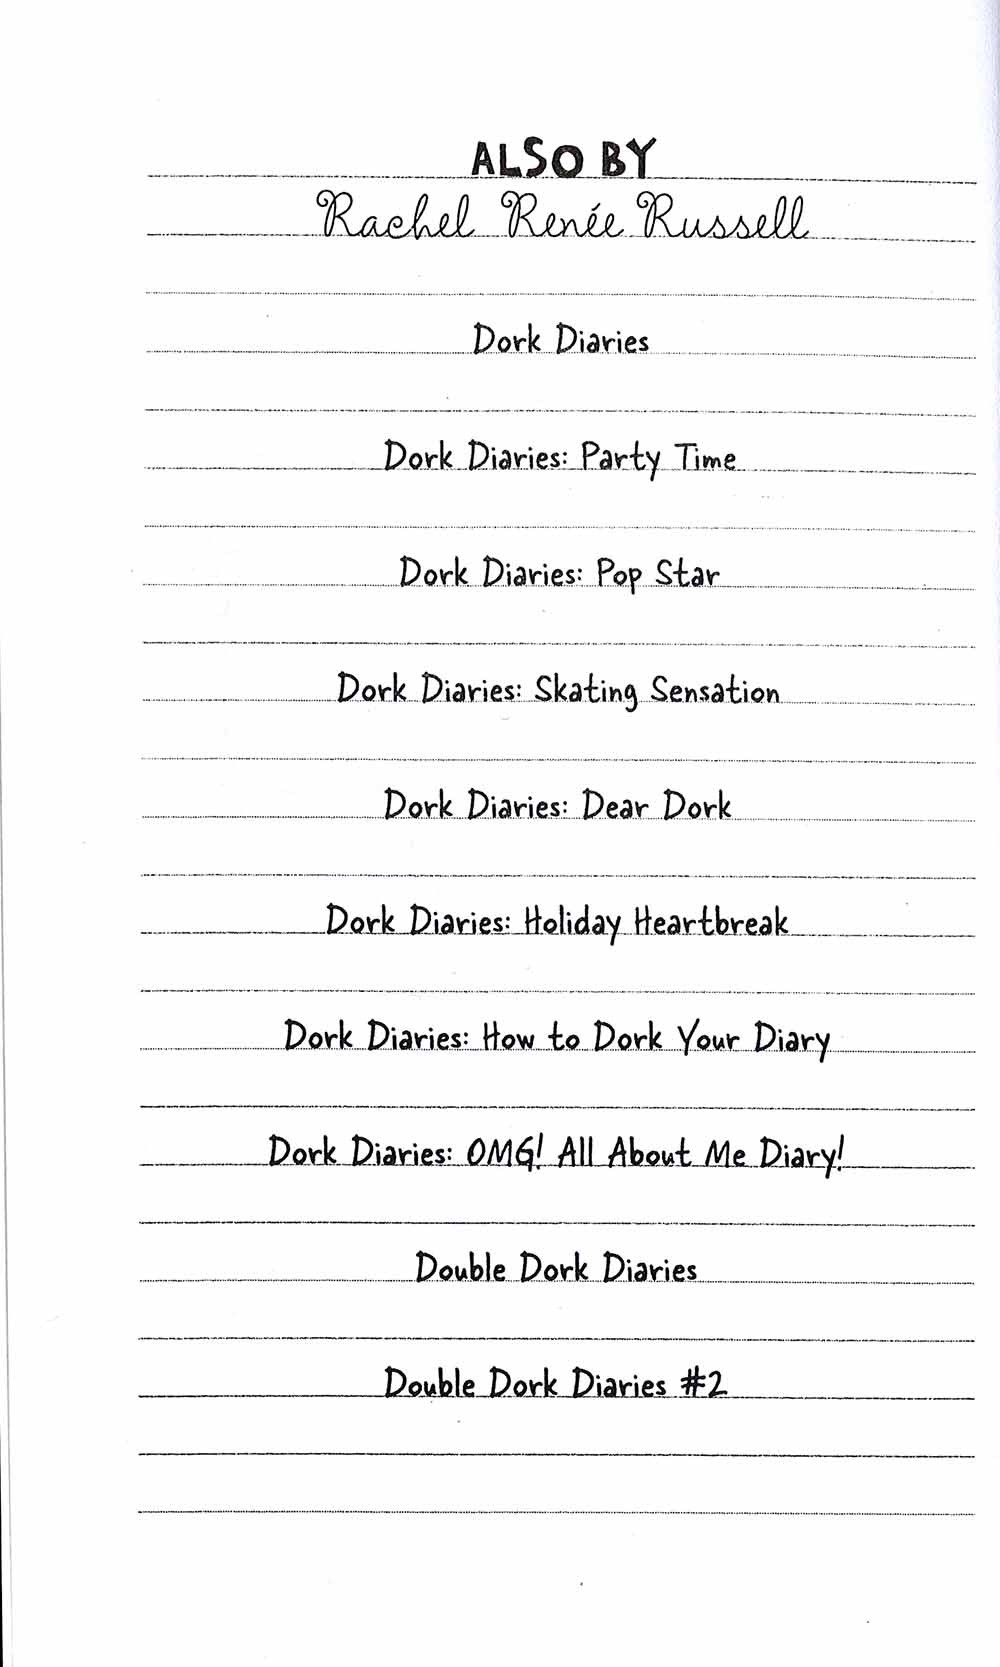 ALSO BY
Rachel Renée Russell
Dork Diaries
Dork Diaries: Party Time
Dork Diaries: Pop Star
Dork Diaries: Skating Sensation
Dork Diaries: Dear Dork
Dork Diaries: Holiday Heartbreak
Dork Diaries: How to Dork Your Diary
Dork Diaries: OMG! All About Me Diary!
Double Dork Diaries
Double Dork Diaries #2